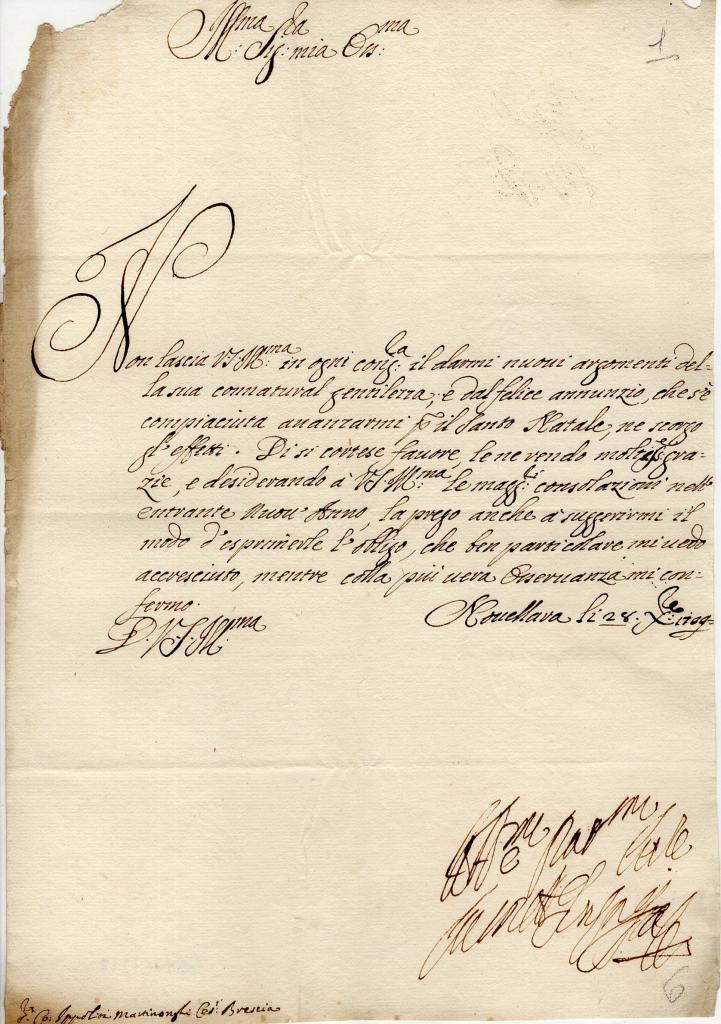 Ill:ma Sig:ra mia Oss:ma
1
Non lascia V.S. Ill:ma in ogni cong:ra il darmi nuovi argomenti del-
la sua connatural gentilezza, e dal felice annunzio, che s'è
compiaciuta avanzarmi p il Santo Natale, ne scorgo
gl'effetti. Di si cortese favore, le ne rendo gra-
zie, e desiderando à V.S. Ill:ma le magg:ri consolazioni nell'
entrante Nuou' Anno, la prego anche à suggerirmi il
modo d'esprimerle l'obligo, che ben particolare mi uedo
accresciuto, mentre colla più uera Osseruanza mi con-
fermo.
D. V.S. Ill:ma
Nouellara li 28. X:bre
6
Co: Ippolita Martinenghi Brescia